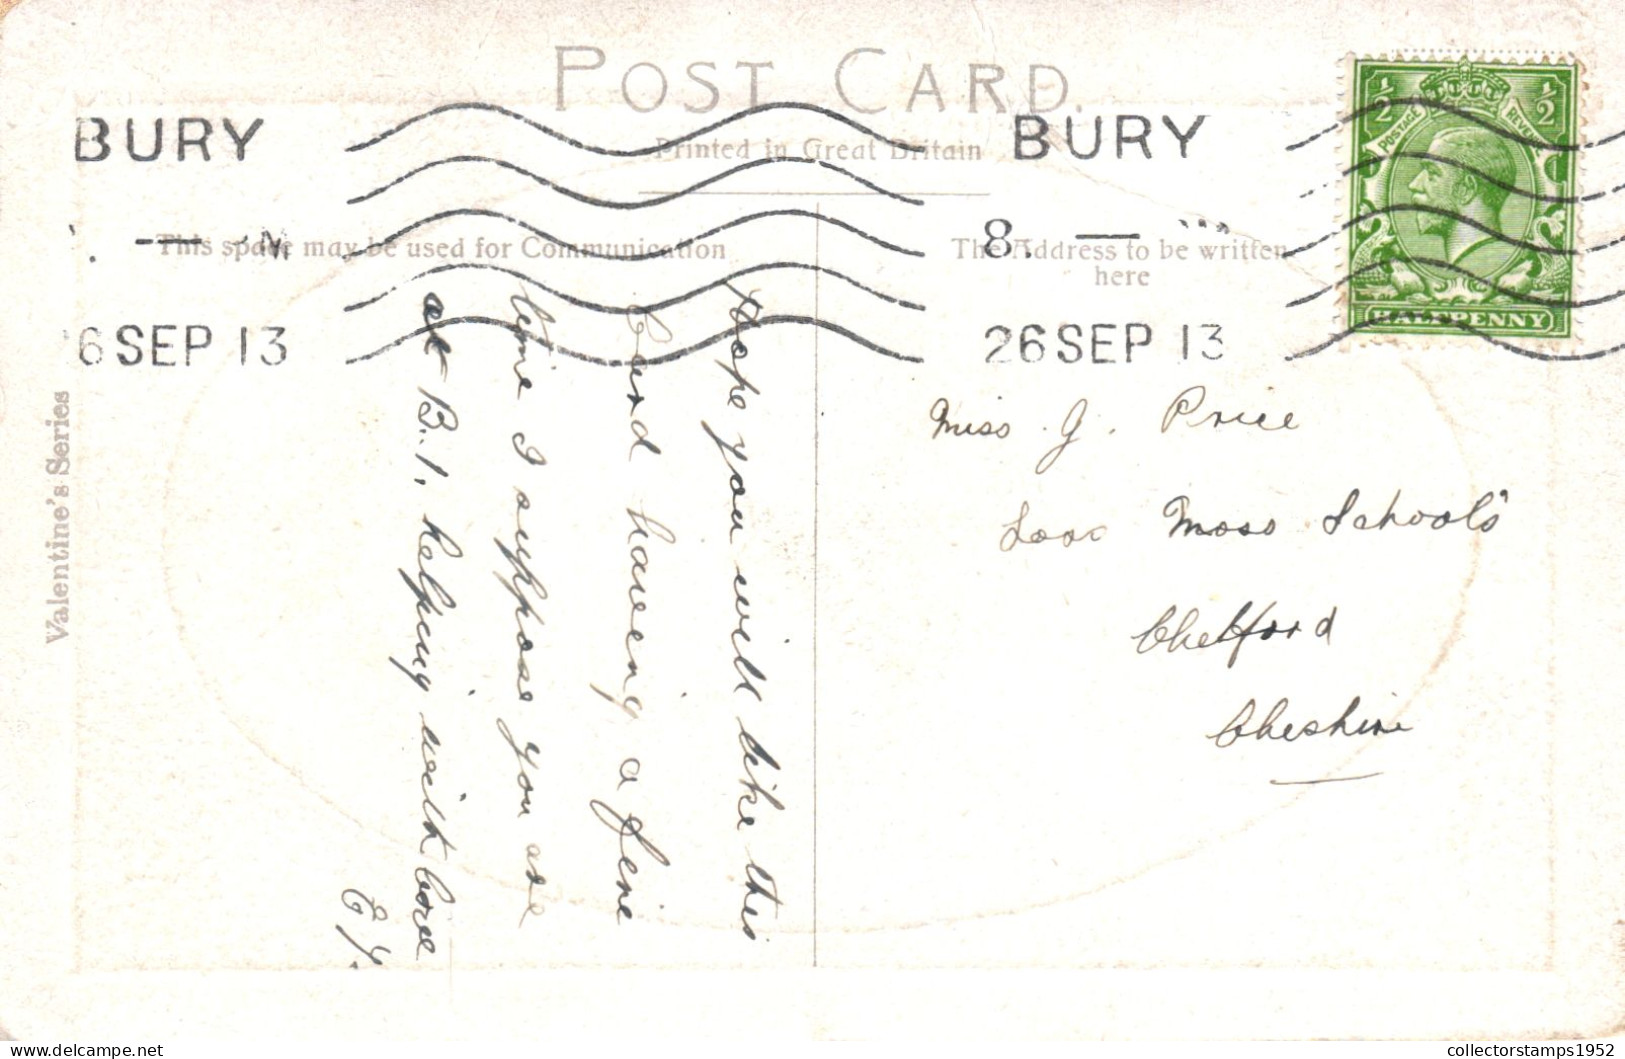 POST CARD.
Printed in Great Britain
BURY
BURY
8.
6 SEP 13
26 SEP 13
½ ½
POSTAGE REVENUE
HALFPENNY
This space may be used for Communication
The Address to be written
here
Valentine's Series
Hope you will like this
Card having a fine
time I suppose you are
at B.1. helping with
E.Y.
Miss J. Price
Moss Schools
Chelford
Cheshire
collectorstamps1952